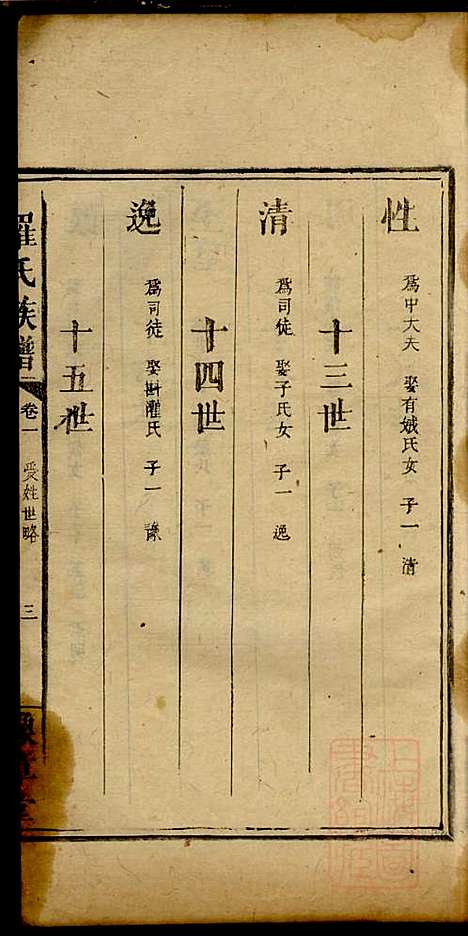 性 爲中大夫 娶有娥氏女 子一 清
十三世
清 爲司徒 娶子氏女 子一 逸
十四世
逸 爲司徒 娶斟灌氏 子一 豫
十五世
羅氏族譜 卷一 受姓世略 三 豫章堂